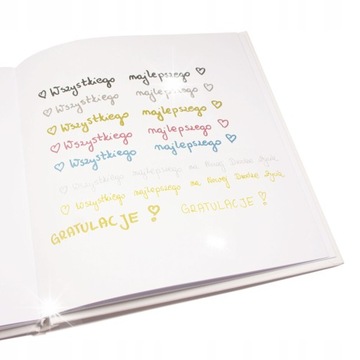 ♡ Wszystkiego najlepszego ♡
♡ Wszystkiego najlepszego ♡
♡ Wszystkiego najlepszego ♡
♡ Wszystkiego najlepszego ♡
♡ Wszystkiego najlepszego ♡
♡ Wszystkiego najlepszego na Nowej Drodze Życia
♡ Wszystkiego najlepszego na Nowej Drodze Życia
GRATULACJE! GRATULACJE!